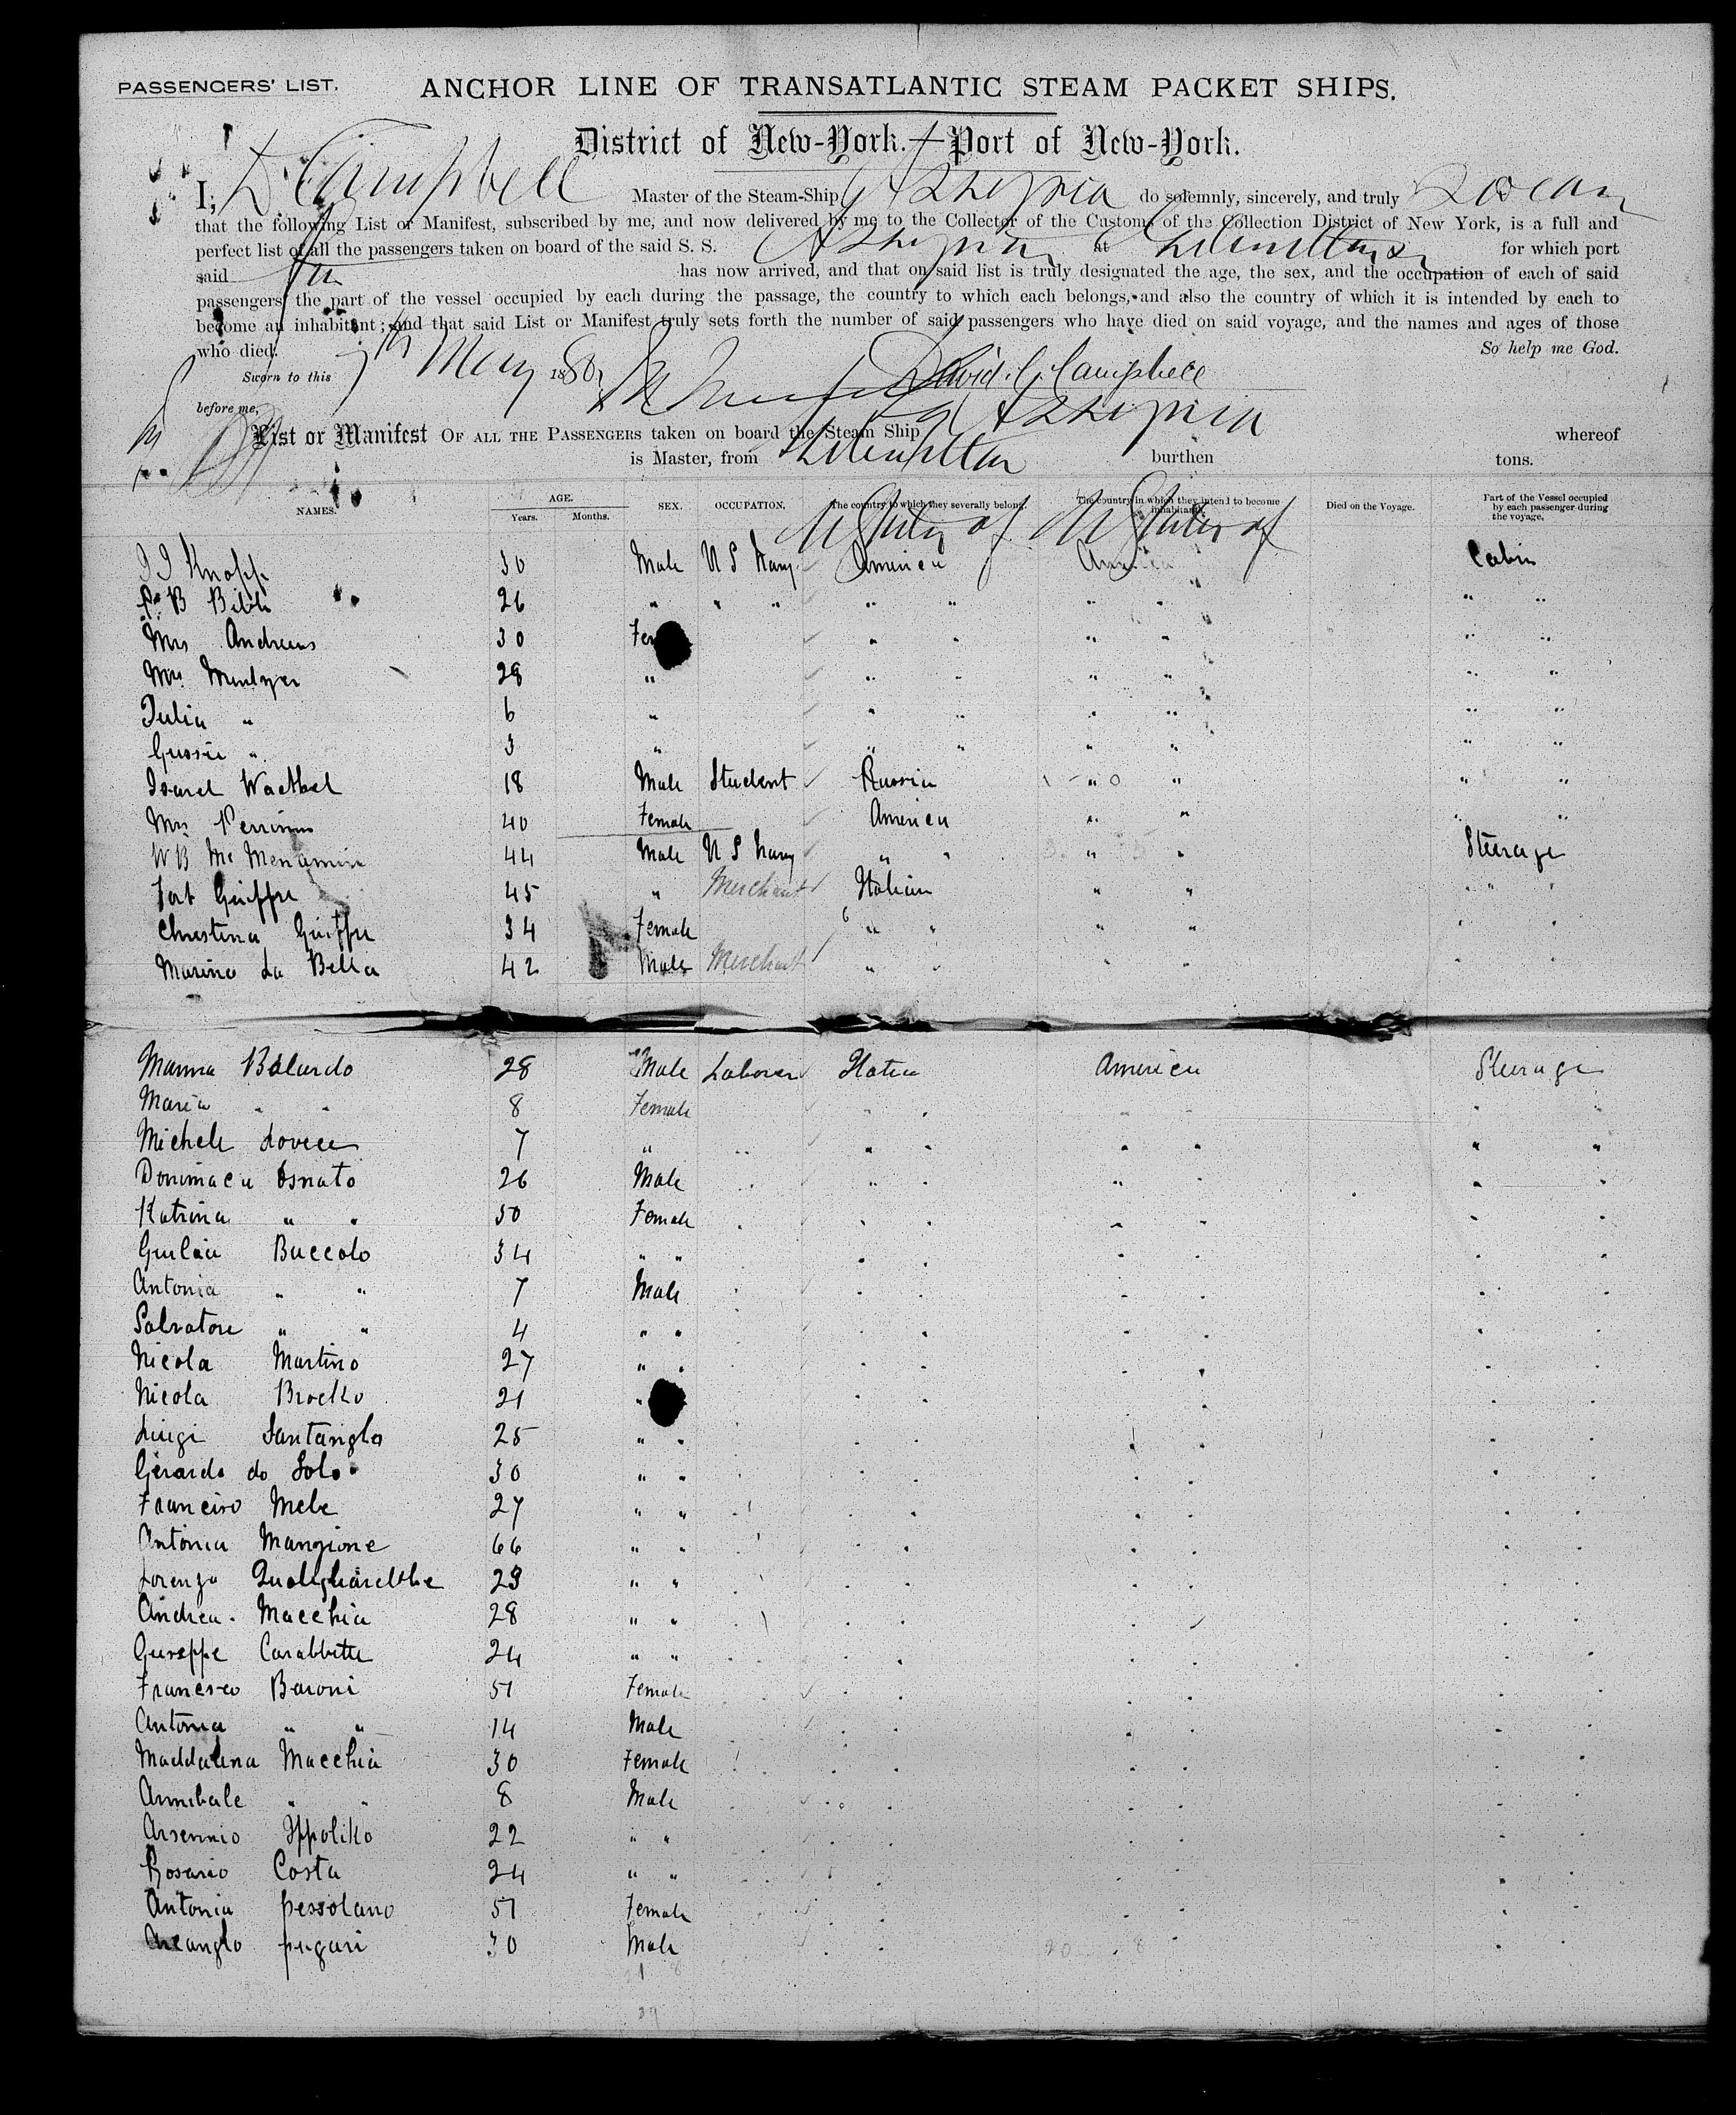 PASSENGERS' LIST.
ANCHOR LINE OF TRANSATLANTIC STEAM PACKET SHIPS.
District of New-York.—Port of New-York.
I, D. Campbell Master of the Steam-Ship do solemnly, sincerely, and truly swear
that the following List or Manifest, subscribed by me, and now delivered by me to the Collector of the Customs of the Collection District of New York, is a full and
perfect list of all the passengers taken on board of the said S. S. at for which port
said has now arrived, and that on said list is truly designated the age, the sex, and the occupation of each of said
passengers, the part of the vessel occupied by each during the passage, the country to which each belongs, and also the country of which it is intended by each to
become an inhabitant; and that said List or Manifest truly sets forth the number of said passengers who have died on said voyage, and the names and ages of those
who died. So help me God.
Sworn to this 7th May 1880 David G. Campbell
before me,
List or Manifest OF ALL THE PASSENGERS taken on board the Steam Ship whereof
is Master, from burthen tons.
NAMES. AGE. Years. Months. SEX. OCCUPATION. The country to which they severally belong. The country in which they intend to become inhabitants. Died on the Voyage. Part of the Vessel occupied by each passenger during the voyage.
U States of U States of
Knopp 30 Male U S Navy America America Cabin
B Bibb 26 " " " " " " " " "
Mrs Andrews 30 " " " " " "
Mrs 28 " " " " " " "
Julia " 6 " " " " " " "
Gussie " 3 " " " " " " "
Wachtel 18 Male Student Russia " " " "
Mrs 40 Female America " " " "
W B Mc Menamin 44 Male U S Navy " " " " Steerage
Giuffre 45 " Merchant Italian " " " "
Christina Giuffre 34 Female " " " " " "
Marino La Bella 42 Male Merchant " " " " " "
28 Male Laborer Italia America Steerage
Maria " " 8 Female " " " " " "
Michele 7 " " " " " " " "
Osnato 26 Male " " " " " "
Katrina " " 50 Female " " " " " "
Giulia Buccolo 34 " " " " " " " "
Antonia " " 7 Male " " " " " "
Salvatore " " 4 " " " " " " " "
Nicola Martino 27 " " " " " " " "
Nicola 21 " " " " " " "
Luigi Santanglo 25 " " " " " " " "
Gerardo do Solo 30 " " " " " " " "
Mele 27 " " " " " " " "
Antonia Mangione 66 " " " " " " " "
Lorenzo 23 " " " " " " " "
Andrea Macchia 28 " " " " " " " "
24 " " " " " " " "
Francesco Baroni 51 Female " " " " " "
Antonia " " 14 Male " " " " " "
Maddalena Macchia 30 Female " " " " " "
Annibale " " 8 Male " " " " " "
Arsennio Ippolito 22 " " " " " " " "
Rosario Costa 24 " " " " " " " "
Antonia pessolano 51 Female " " " " " "
30 Male " " " " " "